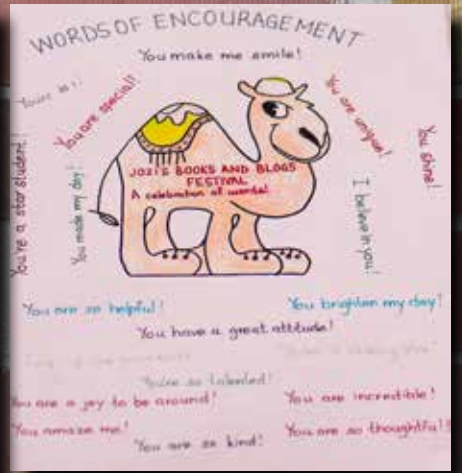 WORDS OF ENCOURAGEMENT
You make me smile!
You are special!
You are unique!
You shine!
You're a star student!
You made my day!
JOZI'S BOOKS AND BLOGS
FESTIVAL
A celebration of words!
I believe in you!
You are so helpful!
You brighten my day!
You have a great attitude!
You're so talented!
You are a joy to be around!
You are incredible!
You amaze me!
You are so thoughtful!
You are so kind!